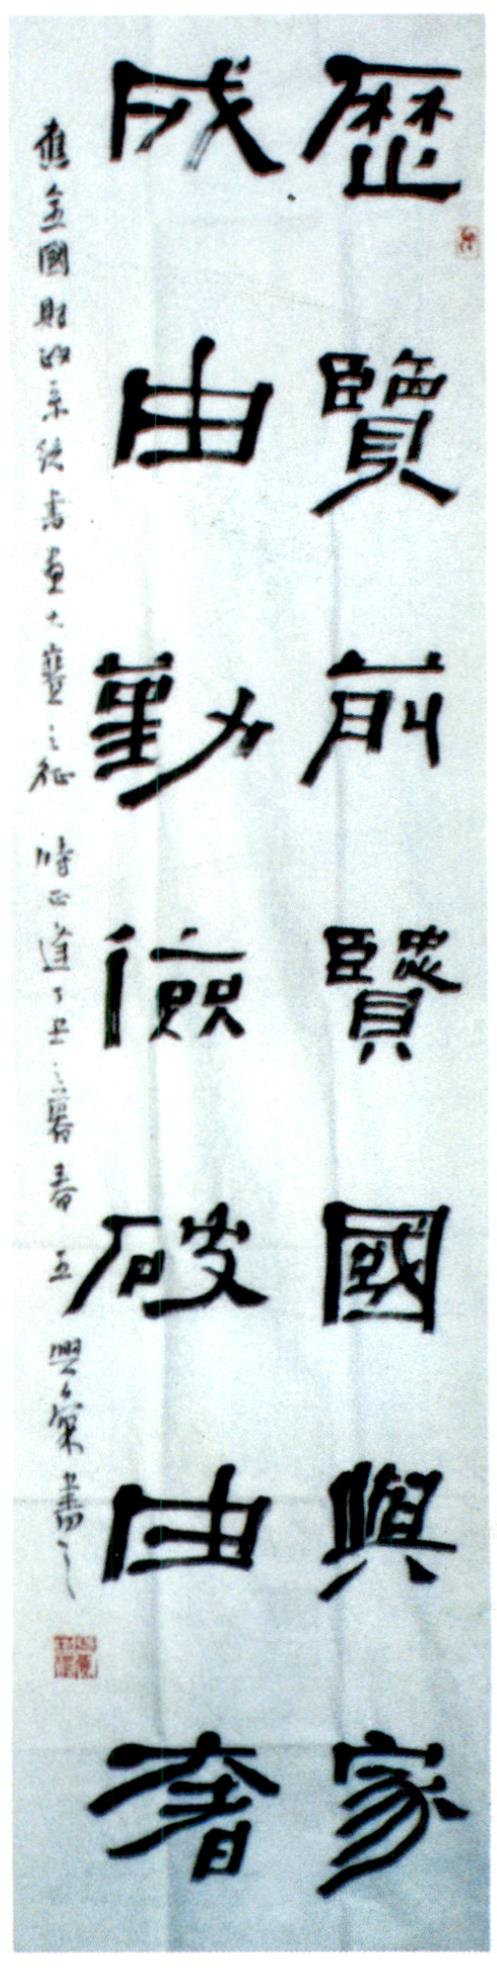 歷覽前賢國與家
成由勤儉破由奢
應全國財政系統書畫大賽之征 時正逢丁丑之暮春 五興 書之